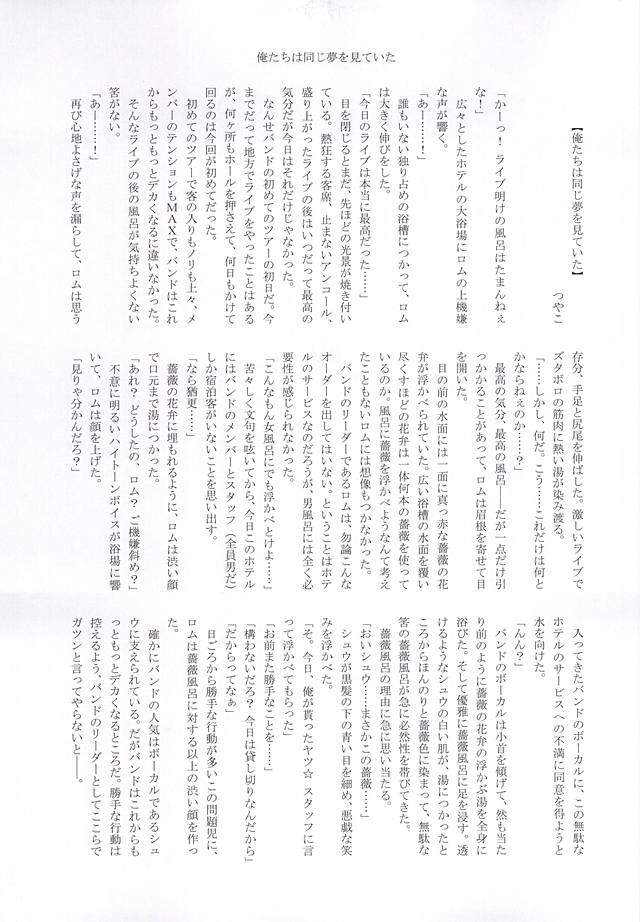 俺たちは同じ夢を見ていた
【俺たちは同じ夢を見ていた】
つやこ
「かーっ！　ライブ明けの風呂はたまんねぇ
な！」
広々としたホテルの大浴場にロムの上機嫌
な声が響く。
「あー……！」
誰もいない独り占めの浴槽につかって、ロム
は大きく伸びをした。
「今日のライブは本当に最高だった……」
目を閉じるとまだ、先ほどの光景が焼き付い
ている。熱狂する客席、止まないアンコール、
盛り上がったライブの後はいつだって最高の
気分だが今日はそれだけじゃなかった。
なんせバンドの初めてのツアーの初日だ。今
までだって地方でライブをやったことはある
が、何ヶ所もホールを押さえて、何日もかけて
回るのは今回が初めてだった。
初めてのツアーで客の入りもノリも上々、メ
ンバーのテンションもMAXで、バンドはこれ
からもっともっとデカくなるに違いなかった。
そんなライブの後の風呂が気持ちよくない
筈がない。
「あー……！」
再び心地よさげな声を漏らして、ロムは思う
存分、手足と尻尾を伸ばした。激しいライブで
ズタボロの筋肉に熱い湯が染み渡る。
「……しかし、何だ。こう……これだけは何と
かならねぇのか……？」
最高の気分、最高の風呂――だが一点だけ引
っかかることがあって、ロムは眉根を寄せて目
を開いた。
目の前の水面には一面に真っ赤な薔薇の花
弁が浮かべられていた。広い浴槽の水面を覆い
尽くすほどの花弁は一体何本の薔薇を使って
いるのか。風呂に薔薇を浮かべようなんて考え
たこともないロムには想像もつかなかった。
バンドのリーダーであるロムは、勿論こんな
オーダーを出してはいない。ということはホテ
ルのサービスなのだろうが、男風呂には全く必
要性が感じられなかった。
「こんなもん女風呂にでも浮かべとけよ……」
苦々しく文句を呟いてから、今日このホテル
にはバンドのメンバーとスタッフ（全員男だ）
しか宿泊客がいないことを思い出す。
「なら猶更……」
薔薇の花弁に埋もれるように、ロムは渋い顔
で口元まで湯につかった。
「あれ？　どうしたの、ロム？　ご機嫌斜め？」
不意に明るいハイトーンボイスが浴場に響
いて、ロムは顔を上げた。
「見りゃ分かんだろ？」
入ってきたバンドのボーカルに、この無駄な
ホテルのサービスへの不満に同意を得ようと
水を向けた。
「んん？」
バンドのボーカルは小首を傾げて、然も当た
り前のように薔薇の花弁の浮かぶ湯を全身に
浴びた。そして優雅に薔薇風呂に足を浸す。透
けるようなシュウの白い肌が、湯につかったと
ころからほんのりと薔薇色に染まって、無駄な
筈の薔薇風呂が急に必然性を帯びてきた。
薔薇風呂の理由に急に思い当たる。
「おいシュウ……まさかこの薔薇……」
シュウが黒髪の下の青い目を細め、悪戯な笑
みを浮かべた。
「そ。今日、俺が貰ったヤツ☆　スタッフに言
って浮かべてもらった」
「お前また勝手なことを……」
「構わないだろ？　今日は貸し切りなんだから」
「だからってなぁ」
日ごろから勝手な行動が多いこの問題児に、
ロムは薔薇風呂に対する以上の渋い顔を作っ
た。
確かにバンドの人気はボーカルであるシュ
ウに支えられている。だがバンドはこれからも
っともっとデカくなるところだ。勝手な行動は
控えるよう、バンドのリーダーとしてここらで
ガツンと言ってやらないと――。